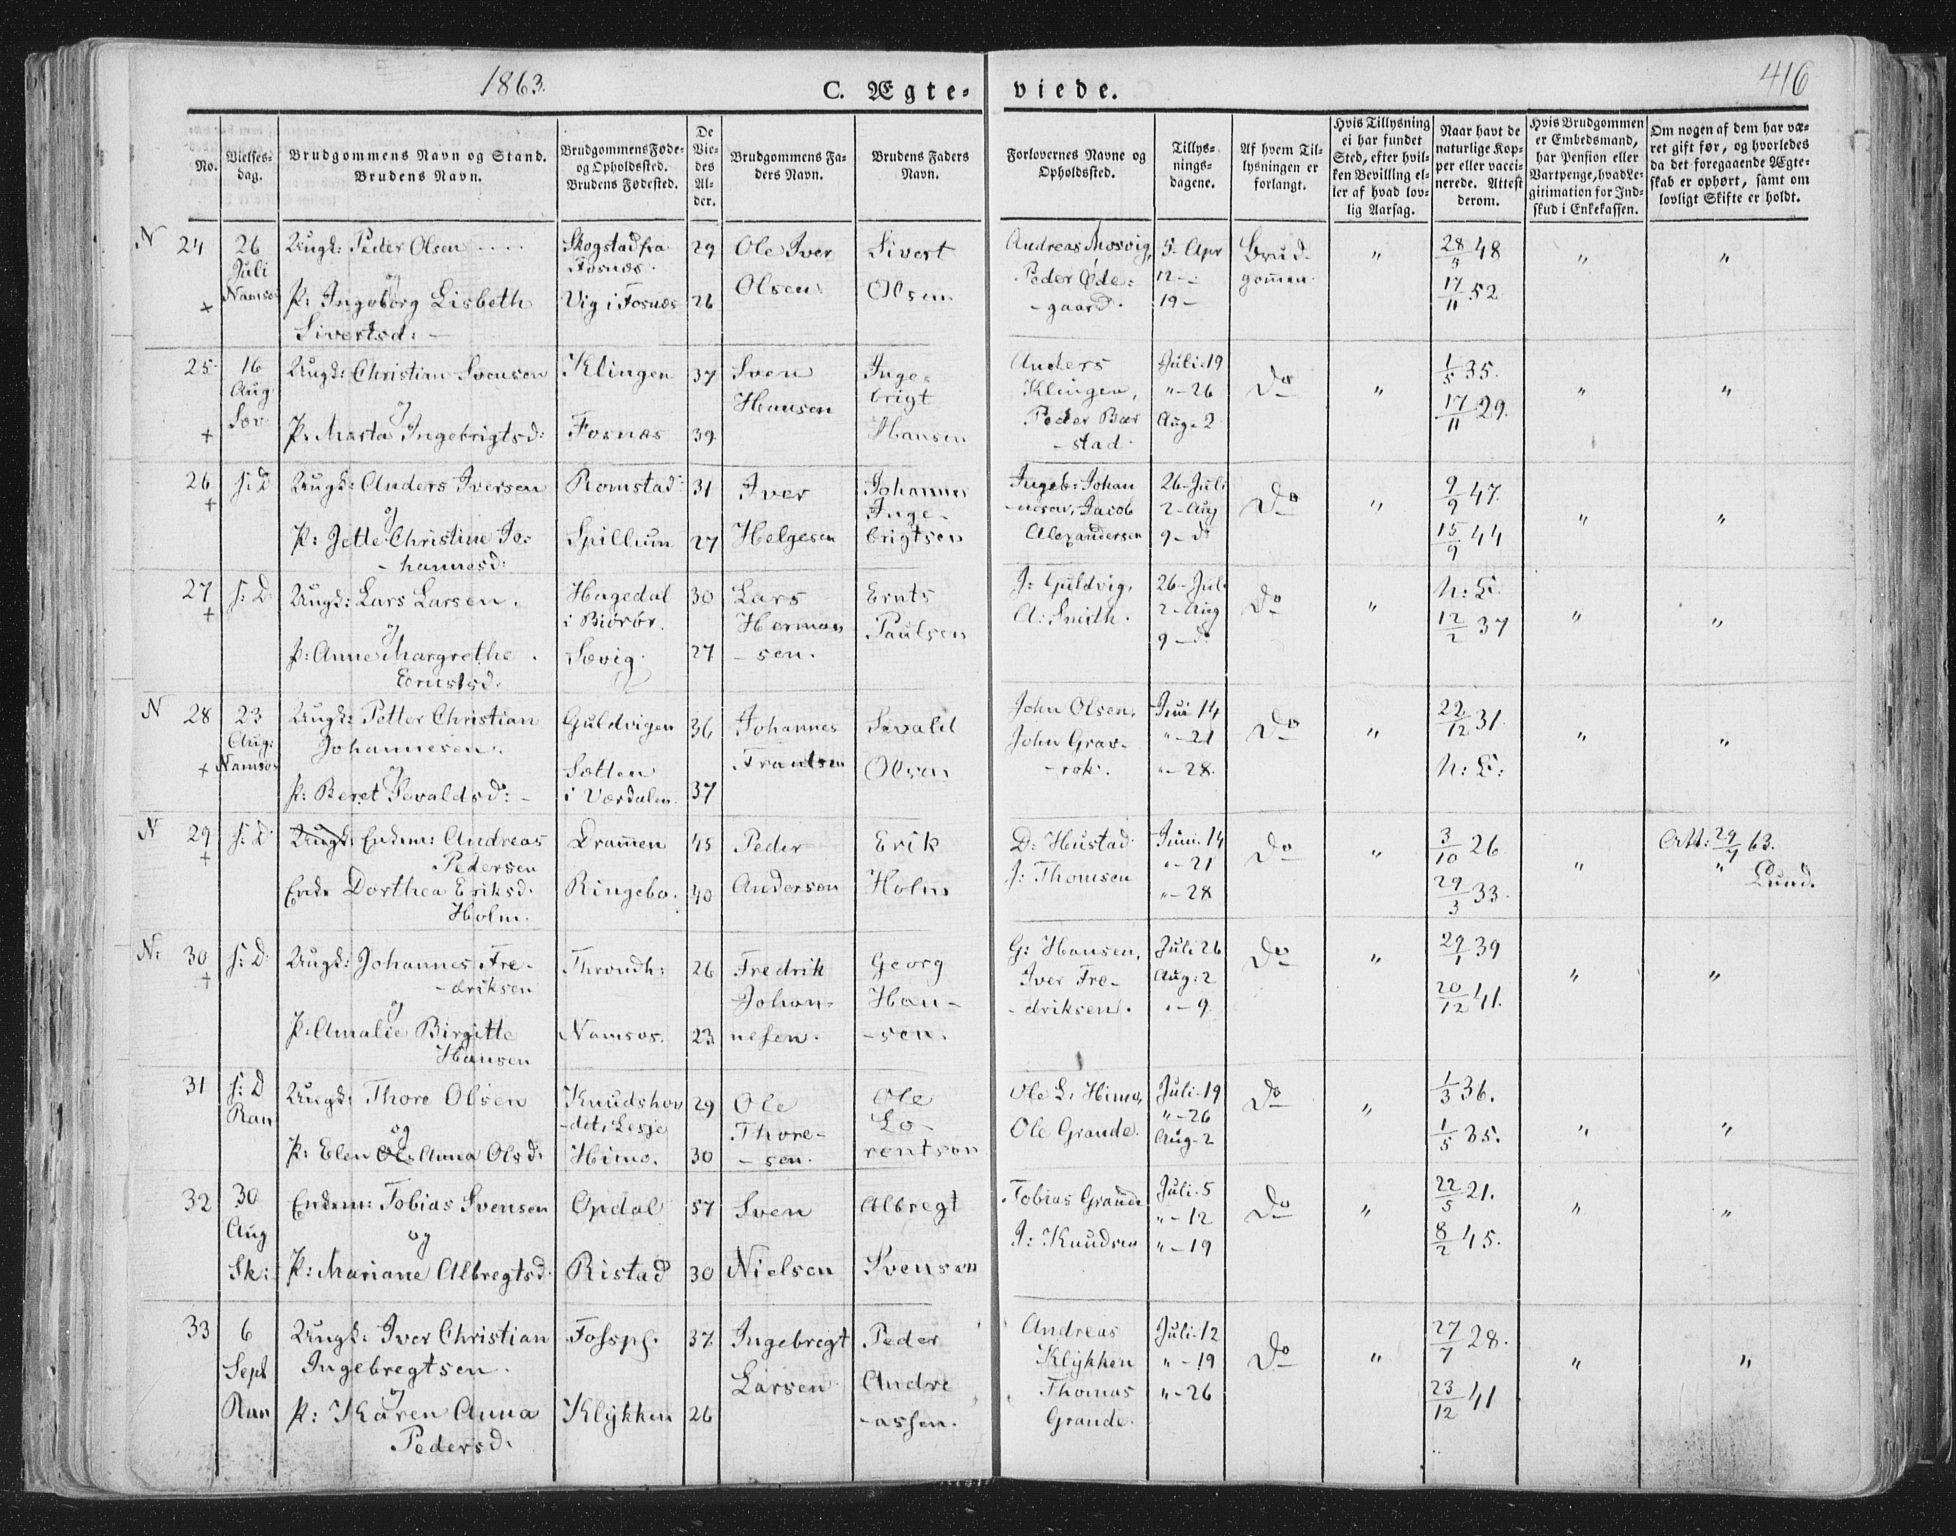 1863.
C. Ægte-
viede.
416
No.
Vielses-
dag.
Brudgommens Navn og Stand.
Brudens Navn.
Brudgommens Føde-
og Opholdssted.
Brudens Fødested.
De
Vie-
des
Al-
der.
Brudgommens Fa-
ders Navn.
Brudens Faders
Navn.
Forlovernes Navne og
Opholdssted.
Tillys-
nings-
dagene.
Af hvem Til-
lysningen er
forlangt.
Hvis Tillysning
ei har fundet
Sted, efter hvil-
ken Bevilling el-
ler af hvad lov-
lig Aarsag.
Naar havt de
naturlige Kop-
per eller vacci-
nerede. Attest
derom.
Hvis Brudgommen
er Embedsmand,
har Pension eller
Vartpenge, hvad Le-
gitimation for Ind-
skud i Enkekassen.
Om nogen af dem har væ-
ret gift før, og hvorledes
da det foregaaende Ægte-
skab er ophørt, samt om
lovligt Skifte er holdt.
N 24 +
26
Juli
Namsos
Ungk: Peder Olsen
og
P: Ingeborg Lisbeth
Sivertsd:
Skogstad fra
Fosnæs.
Vig i Fosnæs
29
26
Ole Iver
Olsen
Sivert
Olsen
Andreas Mosvig,
Peder Øde-
-gaard.
5- Apr
12 -
19 -
Brud-
gommen.
"
28/5 48
17/11 52
"
"
25 +
16
Aug
Sæv.
Ungk: Christian Svensen
og
P: Marta Ingebrigtsd:
Klingen
Fosnæs
37
39
Sven
Hansen
Inge-
brigt
Hansen
Anders
Klingen,
Peder Bær
-stad
Juli-19
" -26
Aug-2
Do
"
1/5 35.
17/11 29.
"
"
26 +
s: D
Ungk: Anders Iversen
og
P: Jette Christine Jo-
-hannesd:
Romstad
Spillum
31
27
Iver
Helgesen
Johannes
Inge-
brigtsen
Ingeb: Johan
-nesen, Jacob
Alexandersen
26-Juli
2-Aug
9-do
Do
"
9/9 47.
15/9 44
"
"
27 +
s: D.
Ungk: Lars Larsen.
og
P: Anne Margrethe
Ernstsd.
Hagedal
i Biørør.
Sævig.
30
27
Lars
Herman
-sen.
Ernts
Paulsen
J: Guldvig,
A: Smith.
26-Juli
2-Aug
9-do
Do
"
12/2 37
"
"
N 28 +
23
Aug:
Namsos
Ungk: Petter Christian
Johannesen.
og
P: Beret Sevaldsd:
Guldvigen
Sætten
i Værdalen.
36
37
Johannes
Frantsen
Sevald
Olsen
John Olsen,
John Grav-
-rok.
Juni 14
" -21
" -28.
Do
"
22/12 31.
"
"
N 29 +
s: D
Ungk: Enkem: Andreas
Pedersen
Enke Dorthea Eriksd.
Holm.
Drammen
Ringebo.
45
40
Peder
Anderson
Erik
Holm
D: Hustad
J: Thomsen
Juni 14
" -21
" -28
Do
"
3/10 26
29/3 33.
"
Att: 29/7 63.
" Lund.
N: 30 +
s: D:
Ungk: Johannes Fre-
-driksen
og
P: Amalie Birgitte
Hansen
Throndh:
Namsos.
26
23
Fredrik
Johan-
nesen.
Georg
Han-
-sen.
G: Hansen,
Iver Fre-
-driksen.
Juli 26
Aug: 2
" -9
Do
"
29/1 39
20/12 41.
"
"
31
s: D
Ran
Ungk: Thore Olsen
og
P: Elen Anna Olsd:
Knudshov
-det, Lesje
Himo.
29
30
Ole
Thore-
-sen.
Ole
Lo-
rentson
Ole L: Himo,
Ole Grande.
Juli-19
" -26
Aug-2
Do
"
1/3 36.
1/5 35.
"
"
32
30
Aug
Sk:
Enkem: Tobias Svensen
og
P: Mariane Albregtsd.
Opdal
Ristad
57
30
Sven
Nielsen
Albregt
Svensen
Tobias Grande
J: Knudsen
Juli-5
" -12
" -19
Do
"
22/5 21.
8/2 45.
"
"
33
6
Sept
Ran
Ungk: Iver Christian
Ingebregtsen.
og
P: Karen Anna
Pedersd.
Fossp.
Klykken
37
26
Ingebregt
Larsen
Peder
Andre
-assen.
Andreas
Klykken
Thomas
Grande.
Juli-12
" -19
" -26
Do
"
27/7 28.
23/12 41
"
"